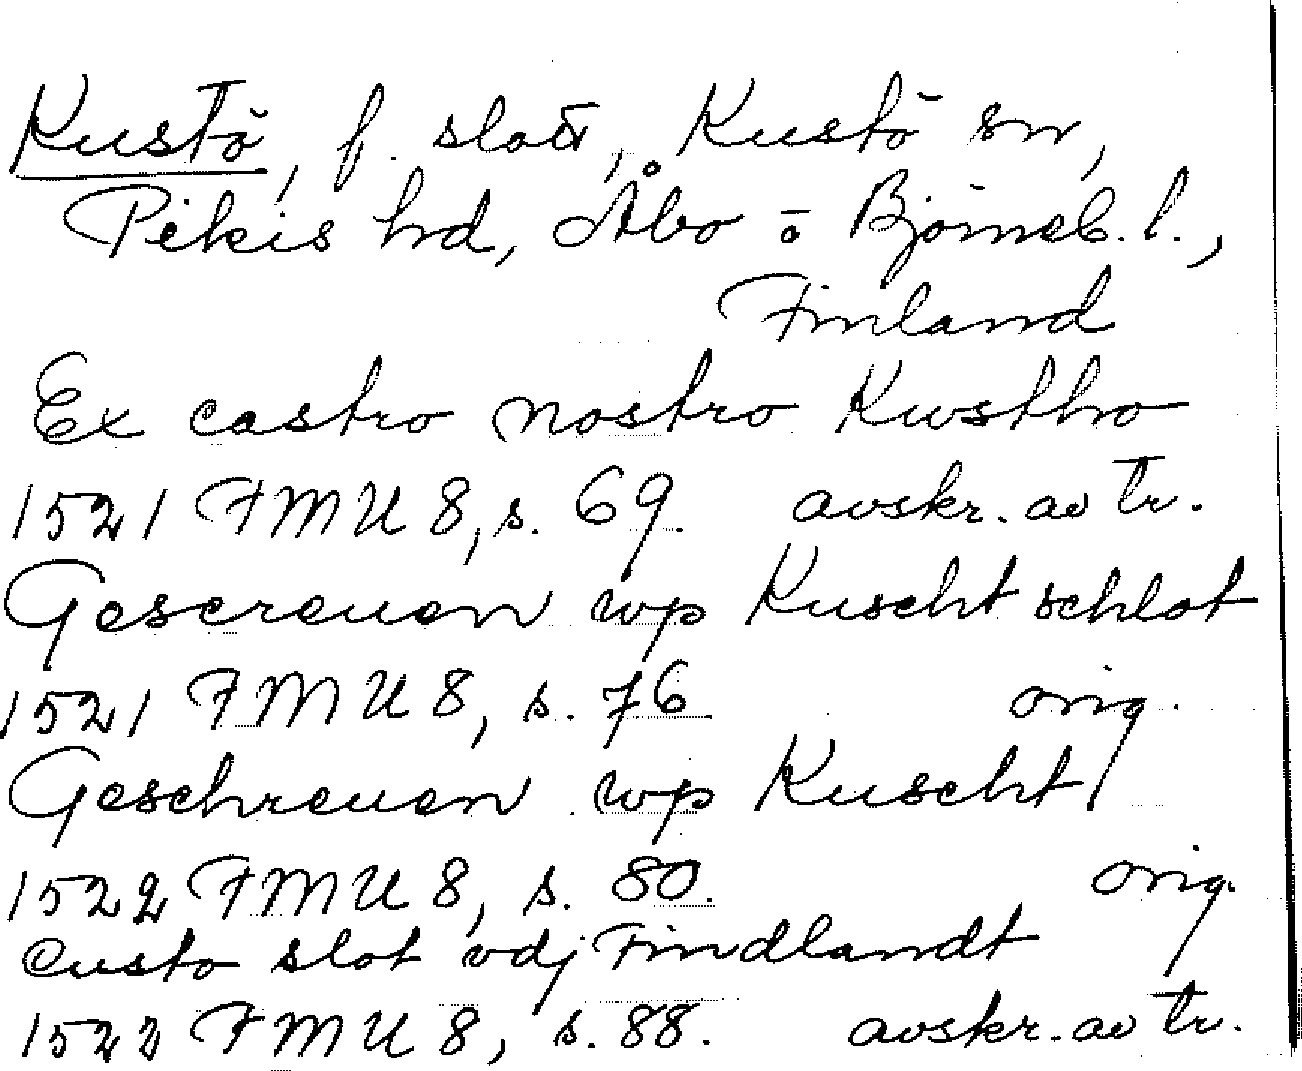 Kustö, f. slott, Kustö sn,
Pikis hd, Åbo o Björneb. l.,
Finland
Ex castro nostro Kwstho
1521 FMU 8, s. 69. avskr. av tr.
Gescreuen wp Kuscht schlot
1521 FMU 8, s. 76 orig.
Geschreuen wp Kuscht
1522 FMU 8, s. 80. orig.
Custo slot vdj Findlandt
1522 FMU 8, s. 88. avskr. av tr.